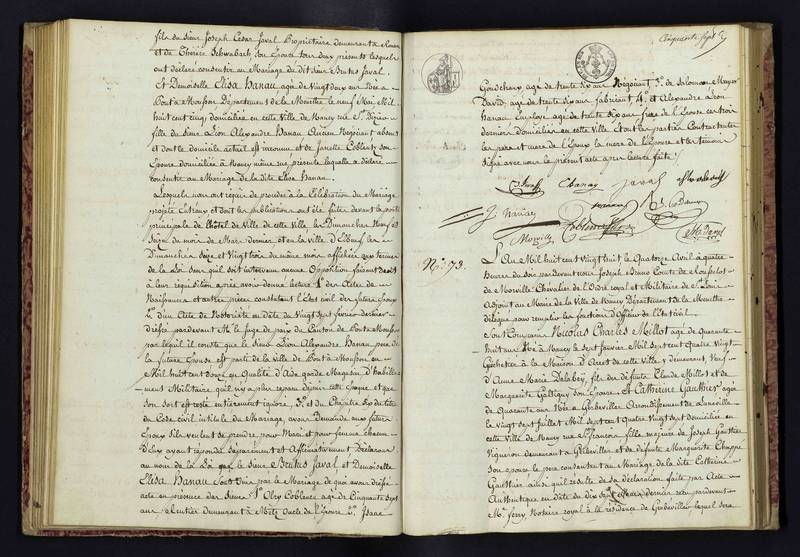 fils du Sieur Joseph Cesar Javal Proprietaire demeurant à
et de Thérèse Schwabach, son Epouse tous deux présens lesquels
ont déclaré consentir au Mariage du dit Sieur Brutus Javal.
Et Demoiselle Elisa Hanau agée de Vingt deux ans Née à
Pont à Mousson Département de la Meurthe le neuf Mai Mil
huit cent cinq domiciliée en cette Ville de Nancy rue St. Dizier
fille du Sieur Lion Alexandre Hanau Ancien Négociant absent
et dont le domicile actuel est inconnu et de Janette Coblentz son
Epouse domiciliée à Nancy même rue présente laquelle a déclaré
consentir au Mariage de la dite Elisa Hanau.
Lesquels nous ont requis de procéder à la Célébration du Mariage
projeté entr'eux et dont les publications ont été faites devant la porte
principale de l'hôtel de Ville de cette ville les Dimanches Neuf et
Seize du mois de Mars dernier et en la ville d'Elbeuf les
Dimanches Seize et Vingt trois du même mois affichées aux termes
de la Loi Sans qu'il soit intervenu aucune Opposition faisant droit
à leur réquisition après avoir donné lecture 1° des Actes de
Naissance et autres pièces constatant l'Etat civil des futurs Epoux
2° d'un Acte de Notoriété en date du Vingt sept février dernier
dressé pardevant Mr. le Juge de paix du Canton de Pont à Mousson
par lequel il conste que le Sieur Lion Alexandre Hanau pere de
la future Epouse est parti de la ville de Pont à Mousson en
Mil huit cent douze en qualité d'Aide garde Magasin d'habille
ment Militaire qu'il n'y a plus reparu depuis cette Epoque et que
son sort est resté entièrement ignoré, 3° et du Chapitre Six du titre
du Code civil intitulé du Mariage, avons Demandé aux futurs
Epoux s'ils veulent se prendre pour Mari et pour femme chacun
d'Eux ayant répondu Séparement et Affirmativement Déclarons
au nom de la Loi que le Sieur Brutus Javal et Demoiselle
Elisa Hanau Sont Unis par le Mariage de quoi avons dressé
acte en présence des Sieurs 1° Olry Coblence agé de Cinquante Sept
ans Rentier demeurant à Metz oncle de l'Epouse 2° Isaac
Cinquante Sept
Goudchaux agé de trente six ans Négociant, 3° de Salomon Mayer
David, agé de trente six ans fabricant, 4° et Alexandre Léon
Hanau Employé agé de trente six ans frère de l'Epouse ces trois
derniers domiciliés en cette Ville Et ont les parties Contractantes
les pere et mere de l'Epoux la mere de l'Epouse et les témoins
Signé avec nous le présent acte après lecture faite.
E hanau
Javal
J. hanau
Morville
N° 73.
L'An Mil huit cent Vingt huit le Quatorze Avril à quatre
heures du Soir pardevant nous Joseph
de Morville Chevalier de l'Ordre royal et Militaire de St. Louis
Adjoint au Maire de la Ville de Nancy Département de la Meurthe
délégué pour remplir les fonctions d'Officier de l'Etat civil.
Sont Comparus Nicolas Charles Millot agé de Quarante
huit ans Né à Nancy le Sept Janvier Mil Sept cent Quatre Vingt
Guichetier à la Maison d'Arret de cette ville y demeurant, Veuf
d'Anne Marie Delabey, fils des défunts Claude Millot et de
Margueritte Son Epouse, et Catherine Gauthier agée
de Quarante ans Née à Gerbéviller Arrondissement de Lunéville
le vingt Sept Juillet Mil Sept cent Quatre Vingt Sept domiciliée en
cette Ville de Nancy rue St. François fille majeure de Joseph Gauthier
Vigneron demeurant à Gerbéviller et de défunte Margueritte Chappé
Son épouse le pere consentant au Mariage de la dite Catherine
Gauthier ainsi qu'il résulte de Sa déclaration faite par Acte
Authentique en date du dix Sept Mars dernier reçu pardevant
Me. ferry, Notaire royal à la résidence de Gerbéviller lequel sera